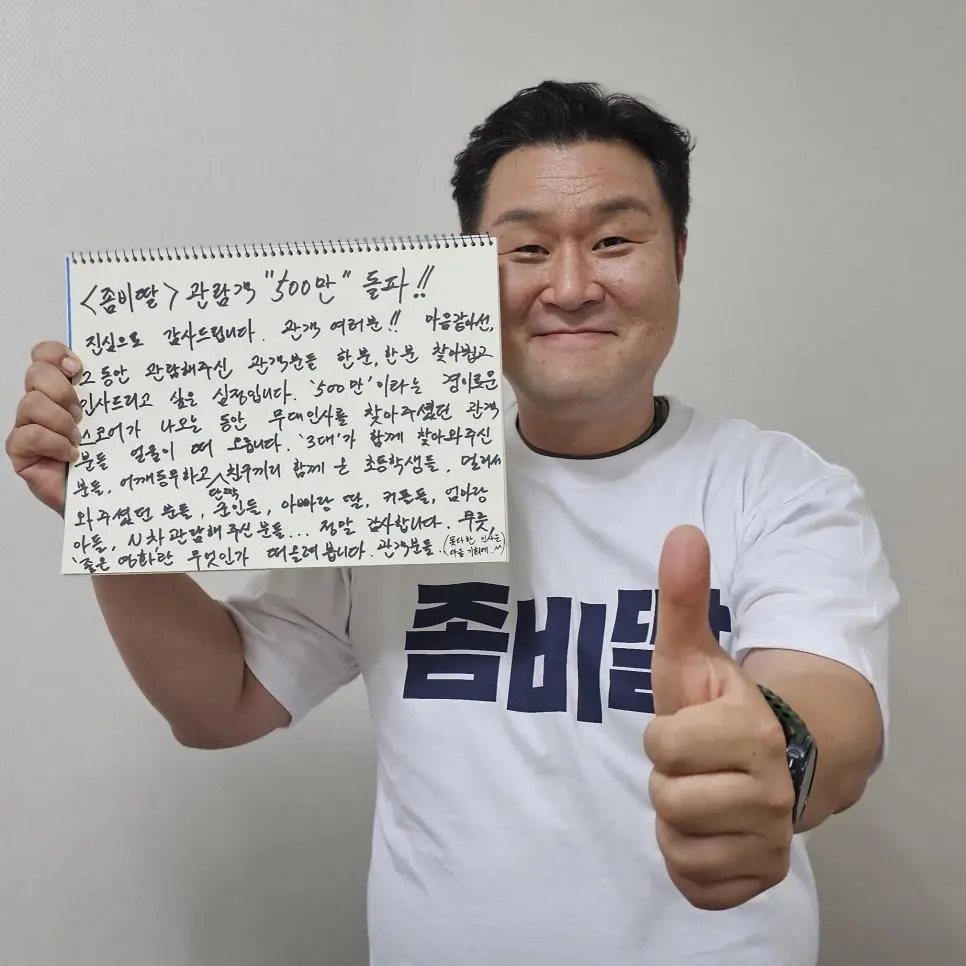 <좀비딸> 관람객 "500만" 돌파!!
진심으로 감사드립니다. 관객 여러분!! 마음같아선,
그동안 관람해주신 관객분들 한분, 한분 찾아뵙고
인사드리고 싶은 심정입니다. '500만'이라는 경이로운
스코어가 나오는 동안 무대인사를 찾아주셨던 관객
분들 얼굴이 떠 오릅니다. '3대'가 함께 찾아와주신
분들, 어깨동무하고 단짝 친구끼리 함께 온 초등학생들, 멀리서
와주셨던 분들, 군인들, 아빠랑 딸, 커플들, 엄마랑
아들, N차관람해주신분들... 정말 감사합니다. 무릇,
'좋은 영화란 무엇인가 떠올려봅니다. 관객분들.. (못다한 인사는
다음 기회에..^^)
좀비딸